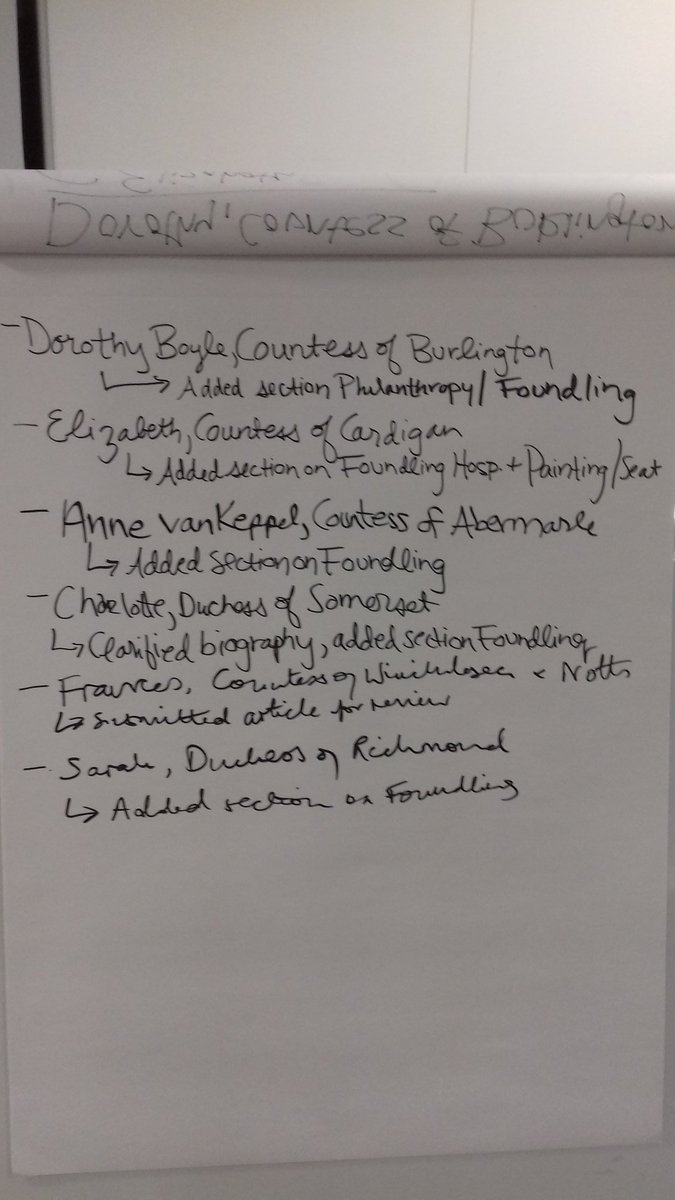 Dorothy, Countess of Burlington
- Dorothy Boyle, Countess of Burlington
↳ Added section Philanthropy / Foundling
- Elizabeth, Countess of Cardigan
↳ Added section on Foundling Hosp. + Painting/Seat
- Anne van Keppel, Countess of Abermarle
↳ Added section on Foundling
- Charlotte, Duchess of Somerset
↳ Clarified biography, added section Foundling
- Frances, Countess of Winchilsea & Notts
↳ Submitted article for review
- Sarah, Duchess of Richmond
↳ Added section on Foundling